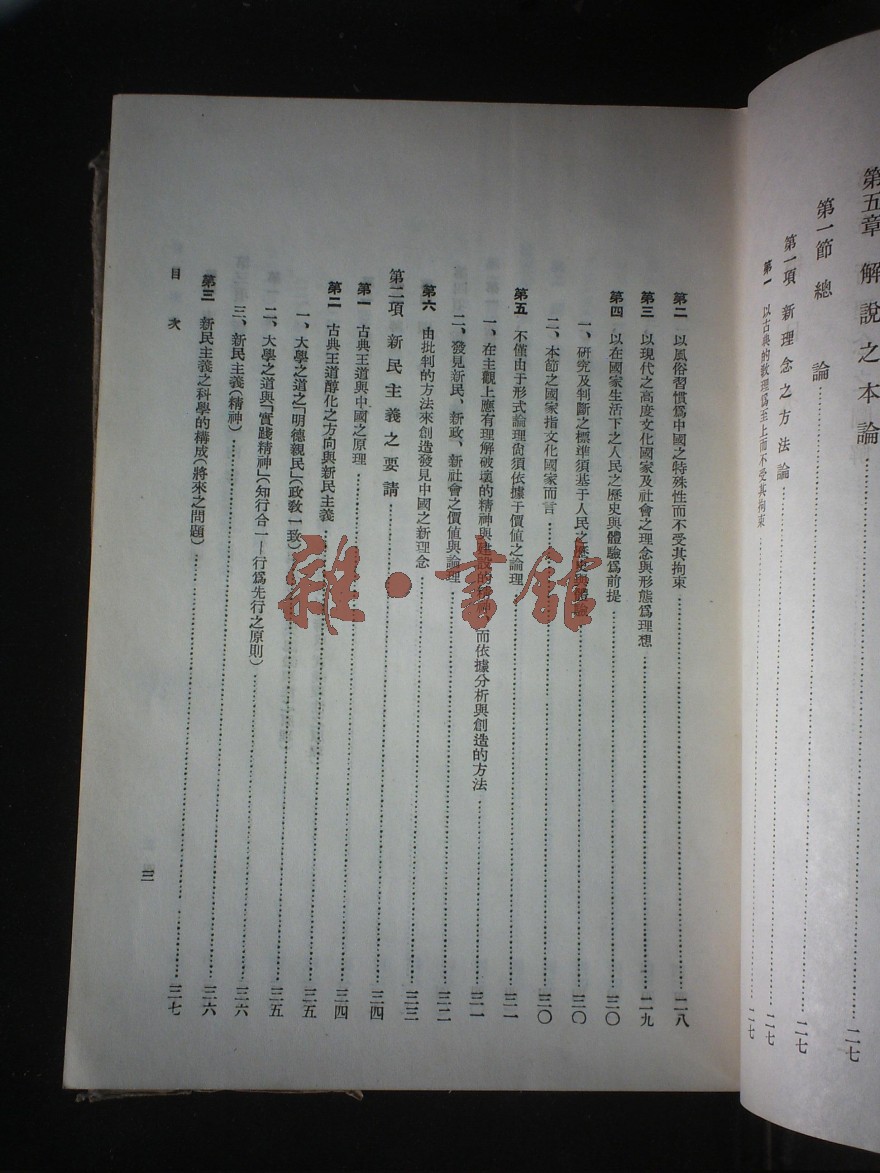 第五章 解說之本論……二七
第一節 總論……二七
第一項 新理念之方法論……二七
第一 以古典的教理爲至上而不受其拘束……二七
第二 以風俗習慣爲中國之特殊性而不受其拘束……二八
第三 以現代之高度文化國家及社會之理念與形態爲理想……二九
第四 以在國家生活下之人民之歷史與體驗爲前提……三〇
一、研究及判斷之標準須基于人民之歷史與體驗……三〇
二、本節之國家指文化國家而言……三〇
第五 不僅由于形式論理尙須依據于價值之論理……三一
一、在主觀上應有理解破壞的精神與建設的精神、而依據分析與創造的方法……三一
二、發見新民、新政、新社會之價值與論理……三二
第六 由批判的方法來創造發見中國之新理念……三三
第二項 新民主義之要請……三四
第一 古典王道與中國之原理……三四
第二 古典王道醇化之方向與新民主義……三五
一、大學之道之「明德親民」(政敎一致)……三五
二、大學之道與「實踐精神」(知行合一—行爲先行之原則)……三六
三、新民主義(精神)……三六
第三 新民主義之科學的構成(將來之問題)……三七
目次
三
雜·書館